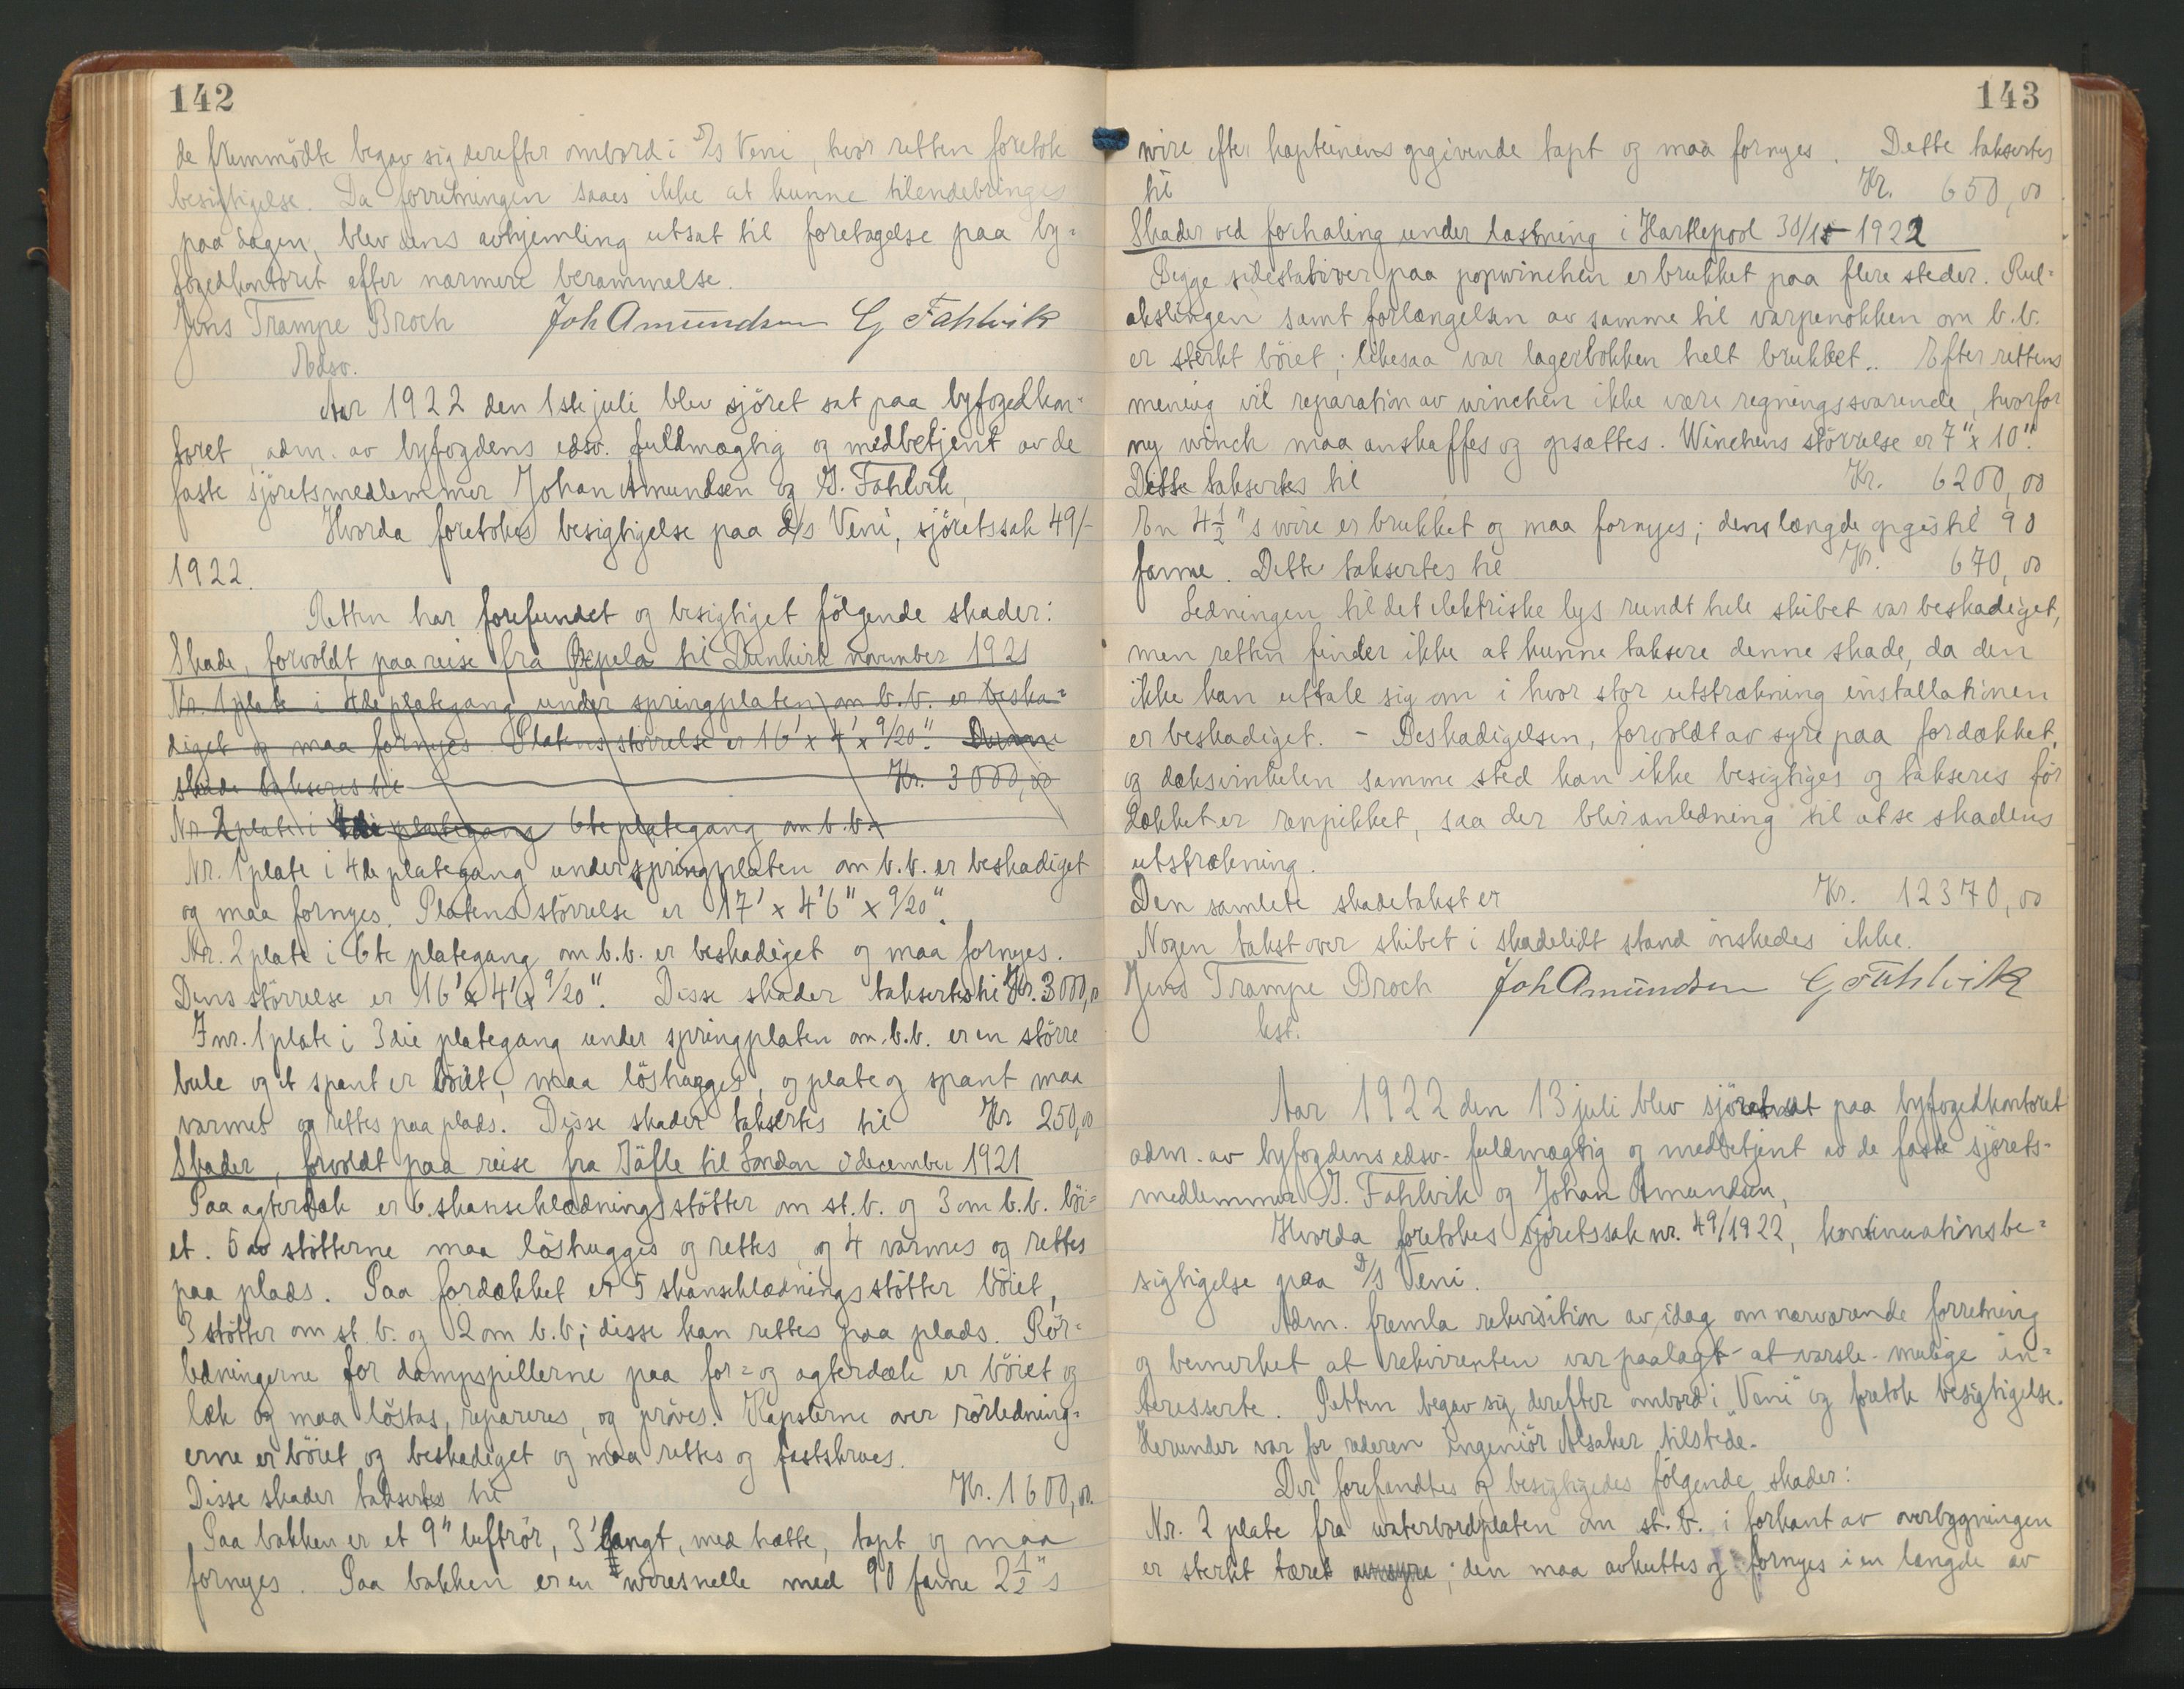 142
de fremmödte begav sig derefter ombord i D/S Veni, hvor retten foretok
besigtigelse. Da forretningen saaes ikke at kunne tilendebringes
paa dagen, blev dens avhjemling utsat til foretagelse paa by=
fogedkontoret efter nærmere berammelse.
Jens Trampe Broch Joh Amundsen G Fahlvik
Edsv.
Aar 1922 den 1ste juli blev sjöret sat paa byfogedkon-
toret, adm. av byfogdens edsv. fuldmægtig og medbetjent av de
faste sjöretsmedlemmer Johan Amundsen og G. Fahlvik,
Hvorda foretokes besigtigelse paa d/s Veni, sjöretssak 49/-
1922.
Retten har forefundet og besigtiget fölgende skader:
Skade, forvoldt paa reise fra til Dunkirk november 1921
Nr. 1 plate i 4de plategang under springplaten om b.b. er beska=
diget og maa fornyes. Platens störrelse er 16' x 4' x 9/20". Denne
skade takseres til Kr. 3000,00
Nr. 2 plate i 4de plategang 6te plategang om b.b.
Nr. 1 plate i 4de plategang under springplaten om b.b. er beskadiget
og maa fornyes. Platens störrelse er 17' x 4'6" x 9/20".
Nr. 2 plate i 6te plategang om b.b. er beskadiget og maa fornyes.
Dens störrelse er 16' x 4' x 9/20". Disse skader taksertes til Kr. 3000,00
I nr. 1 plate i 3die plategang under springplaten om b.b. er en större
bule og et spant er böiet, maa löshugges, og plate og spant maa
varmes og rettes paa plads. Disse skader taksertes til Kr 250,00
Skader, forvoldt paa reise fra Gäfle til London i december 1921
Paa agterdæk er 6 skanseklædningsstötter om st.b. og 3 om b.b. böi=
et. 5 av stötterne maa löshugges og rettes og 4 varmes og rettes
paa plads. Paa fordækket er 5 skanseklædningsstötter böiet,
3 stötter om st.b. og 2 om b.b; disse kan rettes paa plads. Rör=
ledningerne for dampspillerne paa for= og agterdæk er böiet og
læk og maa löstas, repareres, og pröves. Kapslerne over rörledning=
erne er böiet og beskadiget og maa rettes og fastskrues.
Disse skader taksertes til Kr. 1600,00.
Paa bakken er et 9" luftrör, 3' langt, med hætte, tapt og maa
fornyes. Paa bakken er en wiresnelle med 90 favne 2½"s
143
wire efter kapteinens opgivende tapt og maa fornyes. Dette taksertes
til Kr. 650,00
Skader ved forhaling under lastning i Hartlepool 1922
Begge sidestativer paa popwinchen er brukket paa flere steder. Rul=
akslingen samt forlængelsen av samme til varpenokken om b.b.
er sterkt böiet; likesaa var lagerbokken helt brukket. Efter rettens
mening vil reparation av winchen ikke være regningssvarende, hvorfor
ny winch maa anskaffes og opsættes. Winchens störrelse er 7" x 10".
Dette taksertes til Kr. 6200,00
En 4½"s wire er brukket og maa fornyes; dens længde opgis til 90
favne. Dette taksertes til Kr. 670,00
Ledningen til det elektriske lys rundt hele skibet var beskadiget,
men retten finder ikke at kunne taksere denne skade, da den
ikke kan uttale sig om i hvor stor utstrækning installationen
er beskadiget. - Beskadigelsen, forvoldt av syre paa fordækket,
og dæksvinkelen samme sted kan ikke besigtiges og takseres för
dækket er renpikket, saa der blir anledning til at se skadens
utstrækning.
Den samlete skadetakst er Kr. 12370,00
Nogen takst over skibet i skadelidt stand önskedes ikke.
Jens Trampe Broch Joh Amundsen G Fahlvik
kst.
Aar 1922 den 13 juli blev sjöret sat paa byfogedkontoret
adm. av byfogdens edsv. fuldmægtig og medbetjent av de faste sjörets-
medlemmer G. Fahlvik og Johan Amundsen,
Hvorda foretokes sjöretssak nr. 49/1922, kontinuationsbe=
sigtigelse paa D/S Veni.
Adm. fremla rekvisition av idag om nærværende forretning
og bemerket at rekvirenten var paalagt at varsle mulige in=
teresserte. Retten begav sig derefter ombord i "Veni" og foretok besigtigelse.
Herunder var for rederen ingeniör Alsaker tilstede.
Der forefandtes og besigtigedes fölgende skader:
Nr. 2 plate fra waterbordplaten om st.b. i forkant av overbygningen
er sterkt tæret av syre; den maa avkuttes og fornyes i en længde av